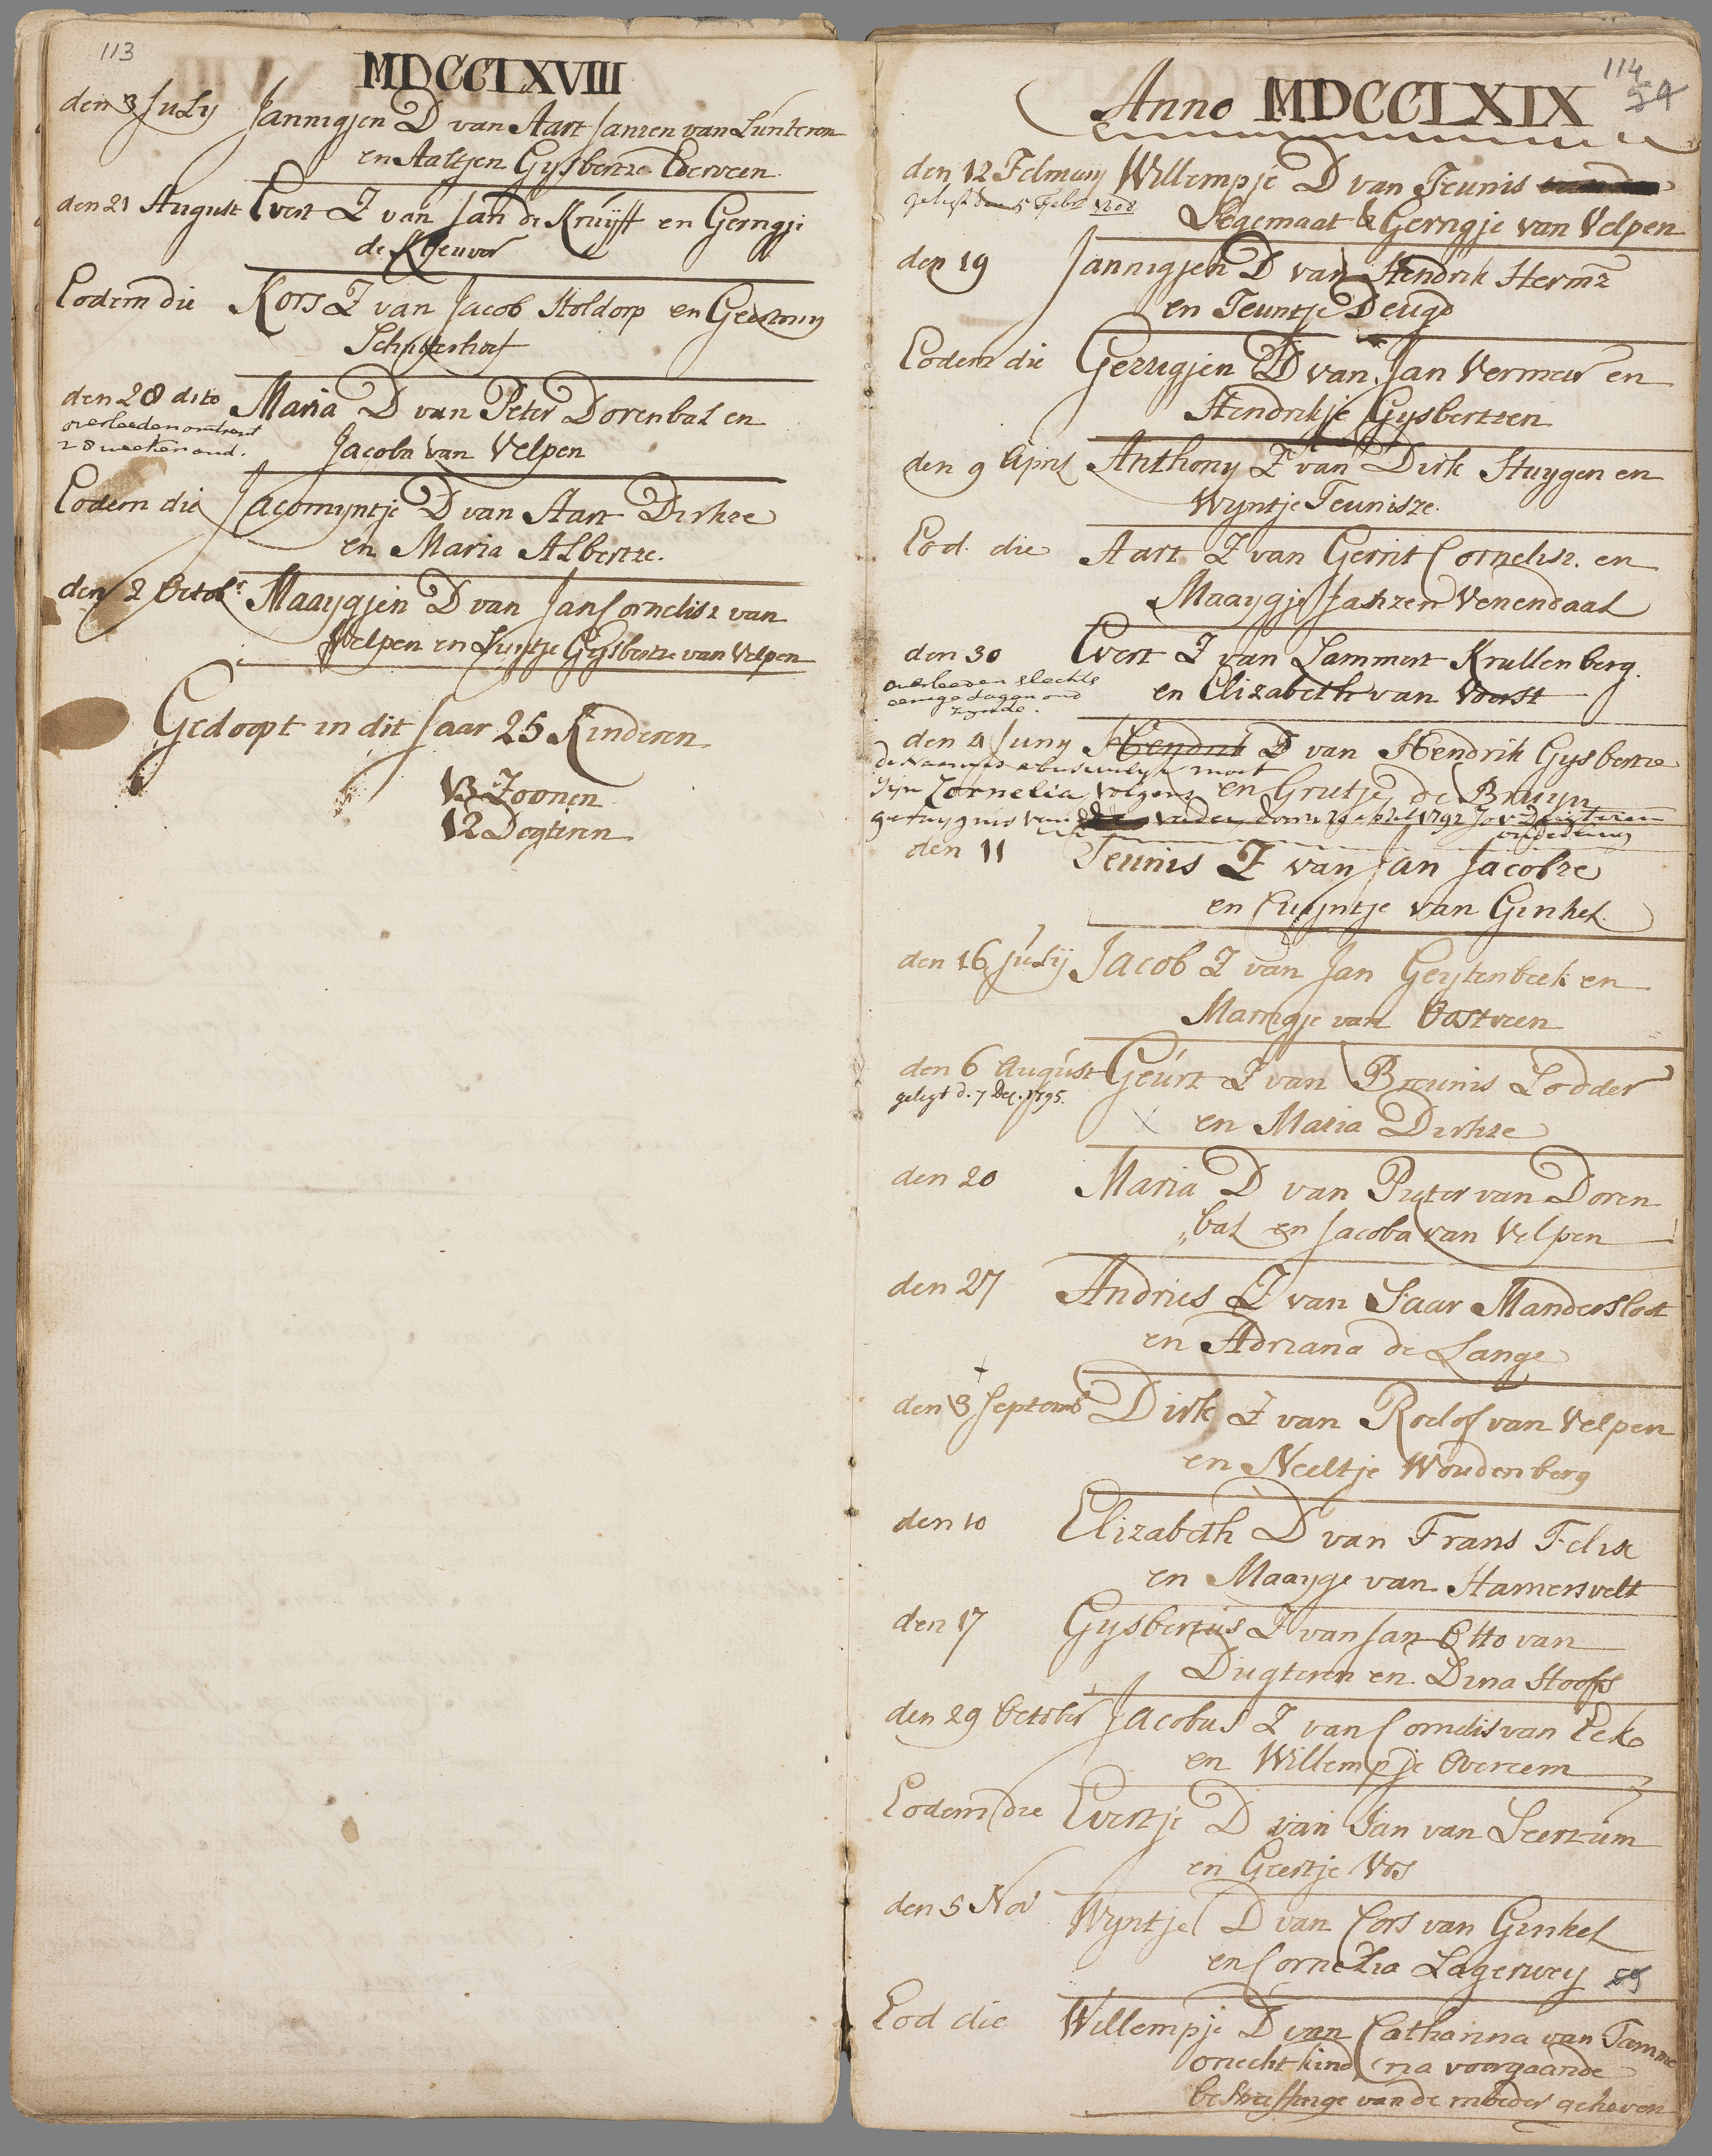 113
MDCCLXVIII
den 3 July Jannigjen D van Aart Janzen van Lunteren
en Aaltjen Gysbertze Ederveen
den 21 August Evert Z van Jan de Kruyff en Gerrigje
de Kleuver
Eodem die Kors Z van Jacob Stoldorp en Geertruy
Schuterhoef
den 28 dito Maria D van Peter Dorenbal en
overleeden omtrent
28 weeken oud. Jacoba van Velpen
Eodem die Jacomyntje D van Aart Dirkze
en Maria Albertze.
den 2 Octobr. Maaygjen D van Jan Cornelisz van
Velpen en Luytje Gysbertze van Velpen
Gedoopt in dit Jaar 25 Kinderen
13 Zoonen
12 Dogteren
114
54
Anno MDCCLXIX
den 12 Februarij Willempje D van Teunis
geligt den 5 Febr 1808 Segemaat & Gerrigje van Velpen
den 19 Jannigjen D van Hendrik Hermz
en Teuntje Deugd
Eodem die Gerrigjen D van Jan Vermeer en
Hendrikje Gysbertzen
den 9 April Anthony Z van Dirk Stuygen en
Wyntje Teunisze.
Eod. die Aart Z van Gerrit Cornelisz. en
Maaygje Janzen Venendaal
den 30 Evert Z van Lammert Krullenberg.
overleeden slechts
eenige dagen oud en Elizabeth van Voorst
zynde.
den 4 Juny Hendrik D van Hendrik Gysbertze
de naam is abusivelyk moet
zijn Cornelia volgens en Grietje de Bruyn
getuygnis van vader dom 1792
ouderling
den 11 Teunis Z van Jan Jacobze
en Cruyntje van Ginkel
den 16 July Jacob Z van Jan Geytenbeek en
Marrigje van Oostveen
den 6 August Geurt Z van Breunis Lodder
geligt d. 7 Dec. 1795. en Maria Dirkze
den 20 Maria D van Pieter van Doren
bal en Jacoba van Velpen
den 27 Andries Z van Saar Mandersloot
en Adriana de Lange
den 3 Septemb Dirk Z van Roelof van Velpen
en Neeltje Woudenberg
den 10 Elizabeth D van Frans Felix
en Maayge van Hamersvelt
den 17 Gysbertus Z van Jan Otto van
Dugteren en Dina Hoofts
den 29 October Jacobus Z van Cornelis van Eck
en Willempje Overeem
Eodem die Evertje D van Jan van Leersum
en Geertje Vos
den 5 Nov Wyntje D van Cors van Ginkel
en Cornelia Lagerwey 59
Eod die Willempje D van Catharina van Tamme
onecht kind na voorgaande
bestraffinge van de moeder geheven